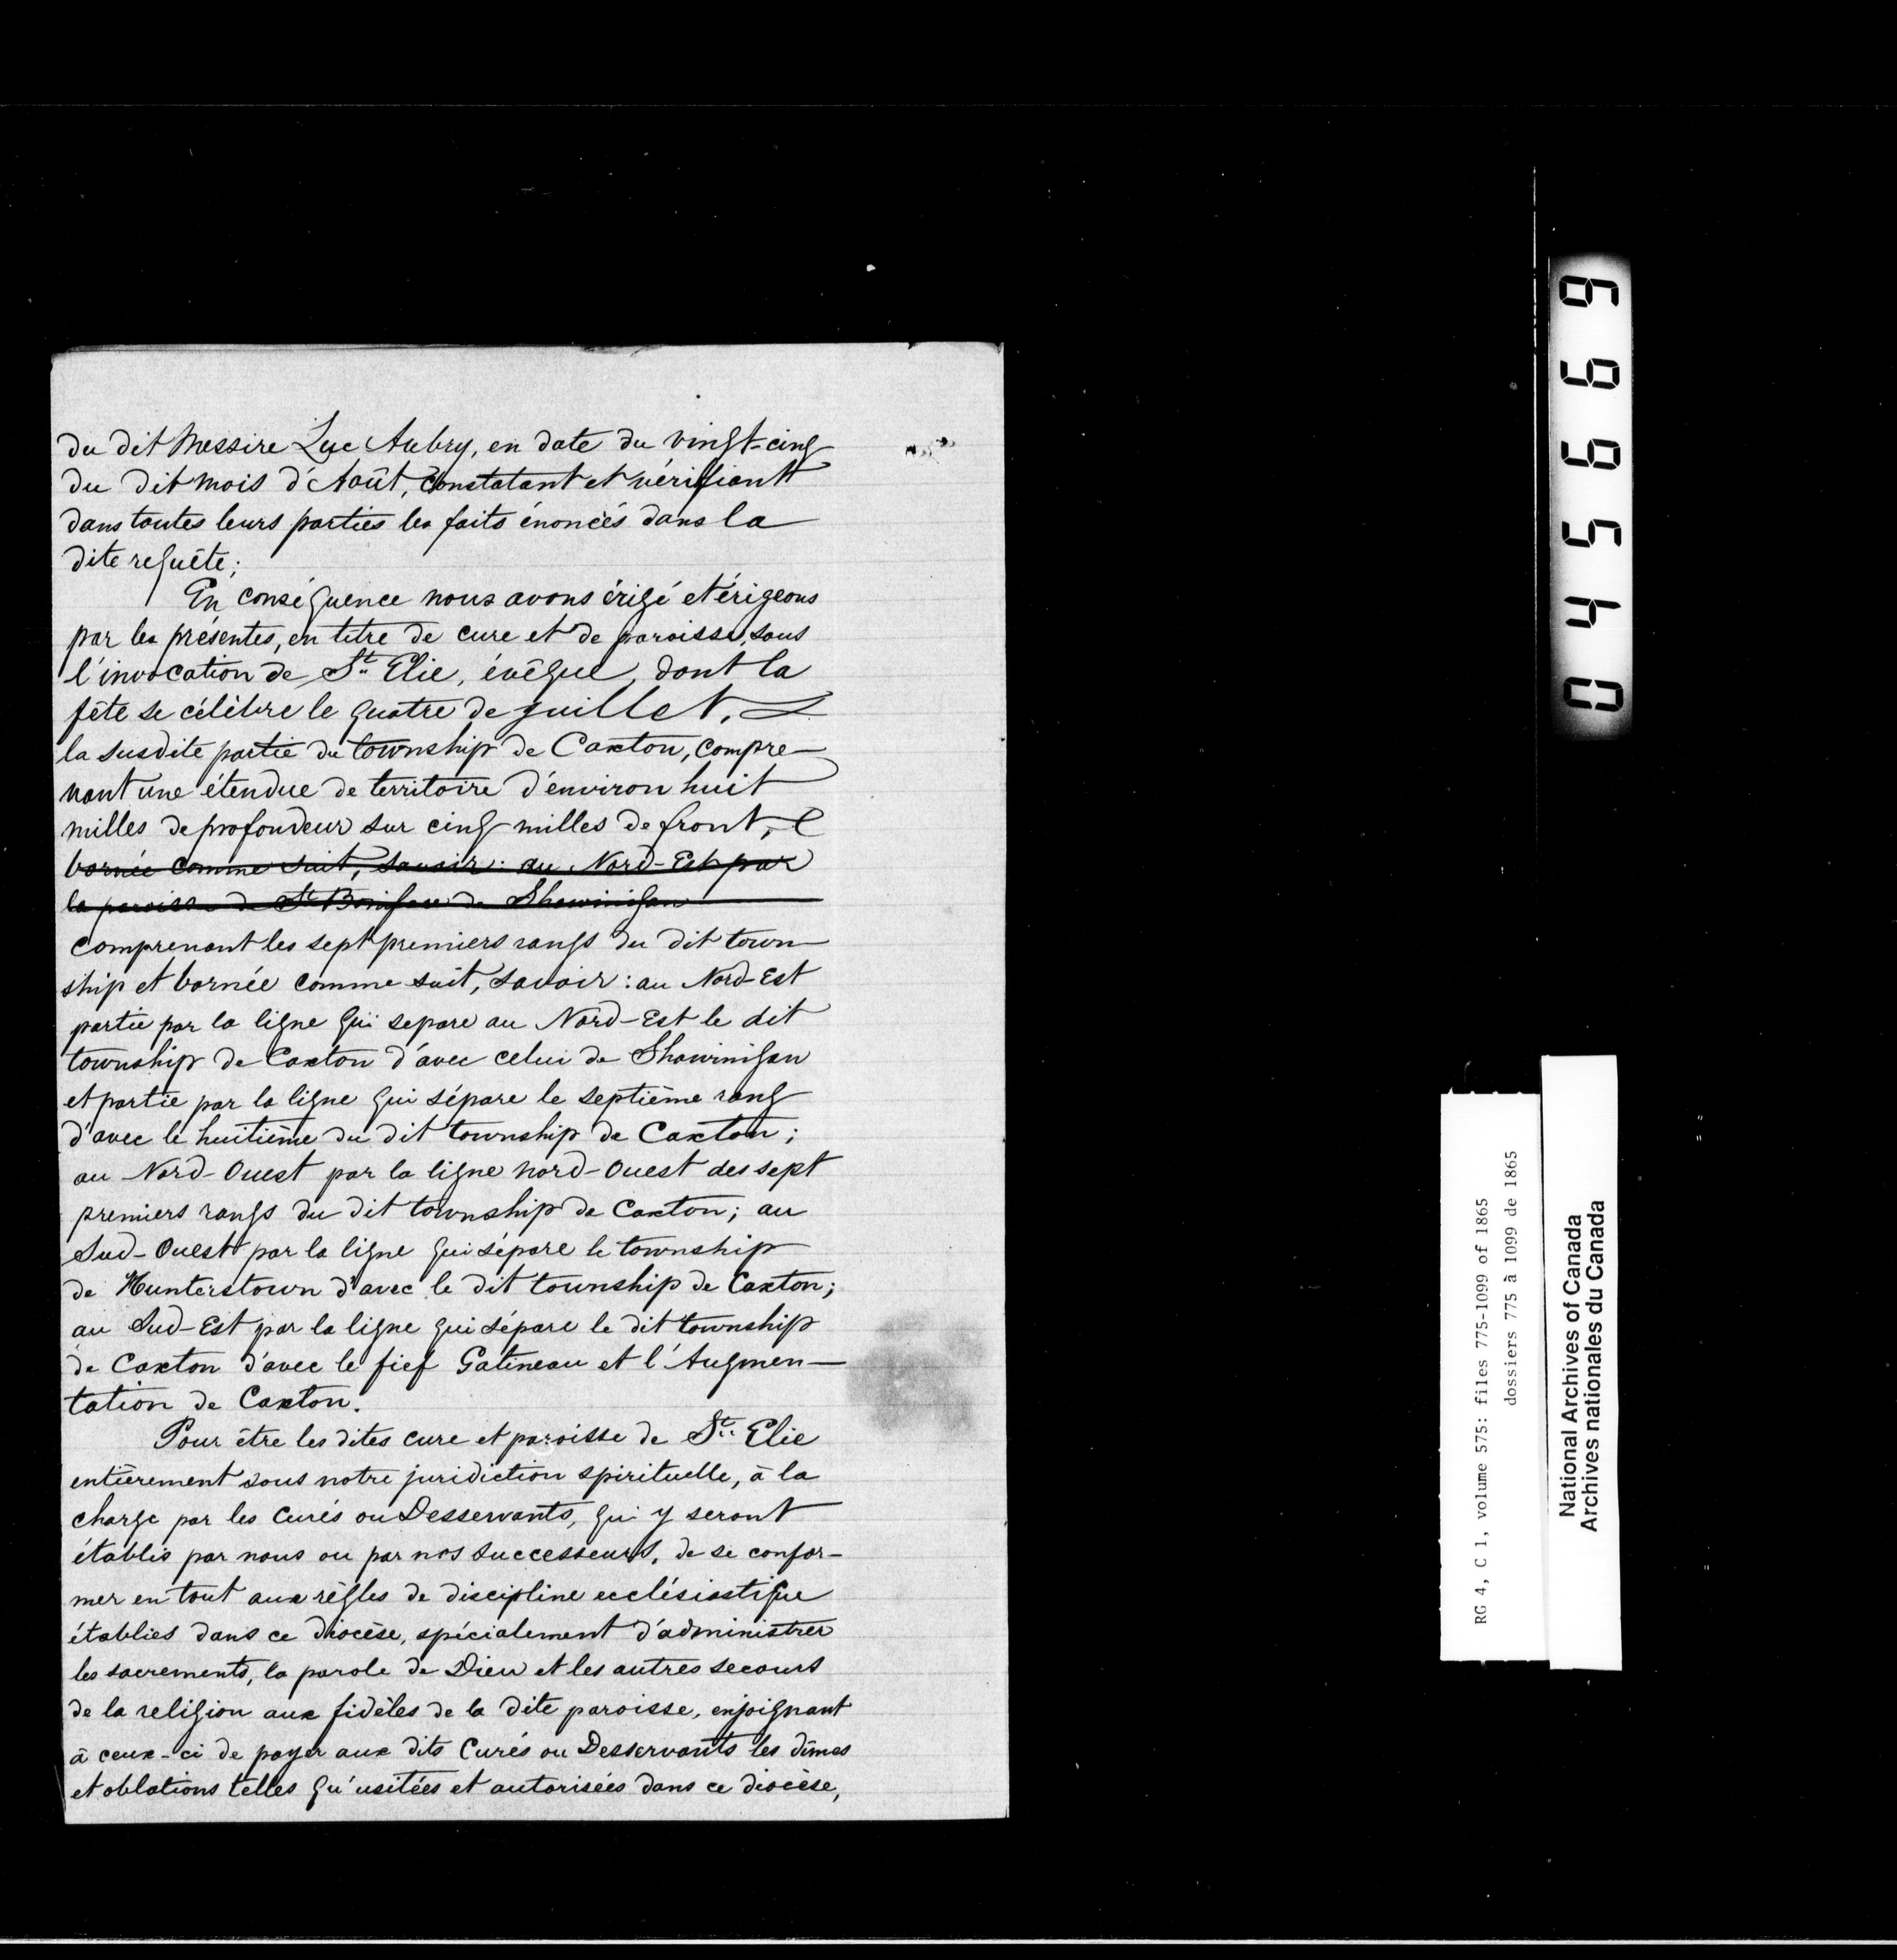 du dit Messire Luc Aubry, en date du vingt-cinq
du dit mois d'Août, constatant et vérifiant
dans toutes leurs parties les faits énoncés dans la
dite requête;
En conséquence nous avons érigé et érigeons
par les présentes, en titre de cure et de paroisse, sous
l'invocation de St. Elie, évêque, dont la
fête se célèbre le quatre de juillet,
la susdite partie du township de Caxton, compre-
nant une étendue de territoire d'environ huit
milles de profondeur sur cinq milles de front,
bornée comme suit, savoir: au Nord-Est par
la paroisse de St Boniface de Shawinigan
comprenant les sept premiers rangs du dit town-
ship et bornée comme suit, savoir: au Nord-Est
partie par la ligne qui separe au Nord-Est le dit
township de Caxton d'avec celui de Shawinigan
et partie par la ligne qui sépare le septième rang
d'avec le huitième du dit township de Caxton;
au Nord-Ouest par la ligne nord-Ouest des sept
premiers rangs du dit township de Caxton; au
Sud-Ouest par la ligne qui sépare le township
de Hunterstown d'avec le dit township de Caxton;
au Sud-Est par la ligne qui sépare le dit township
de Caxton d'avec le fief Gatineau et l'Augmen-
tation de Caxton.
Pour être les dites cure et paroisse de St. Elie
entièrement sous notre juridiction spirituelle, à la
charge par les Curés ou Desservants, qui y seront
établis par nous ou par nos successeurs, de se confor-
mer en tout aux règles de discipline ecclésiastique
établies dans ce diocèse, spécialement d'administrer
les sacrements, la parole de Dieu et les autres secours
de la religion aux fidèles de la dite paroisse, enjoignant
à ceux-ci de payer aux dits Curés ou Desservants les dîmes
et oblations telles qu'usitées et autorisées dans ce diocèse,
045669
RG 4, C 1, volume 575: files 775-1099 of 1865
dossiers 775 à 1099 de 1865
National Archives of Canada
Archives nationales du Canada